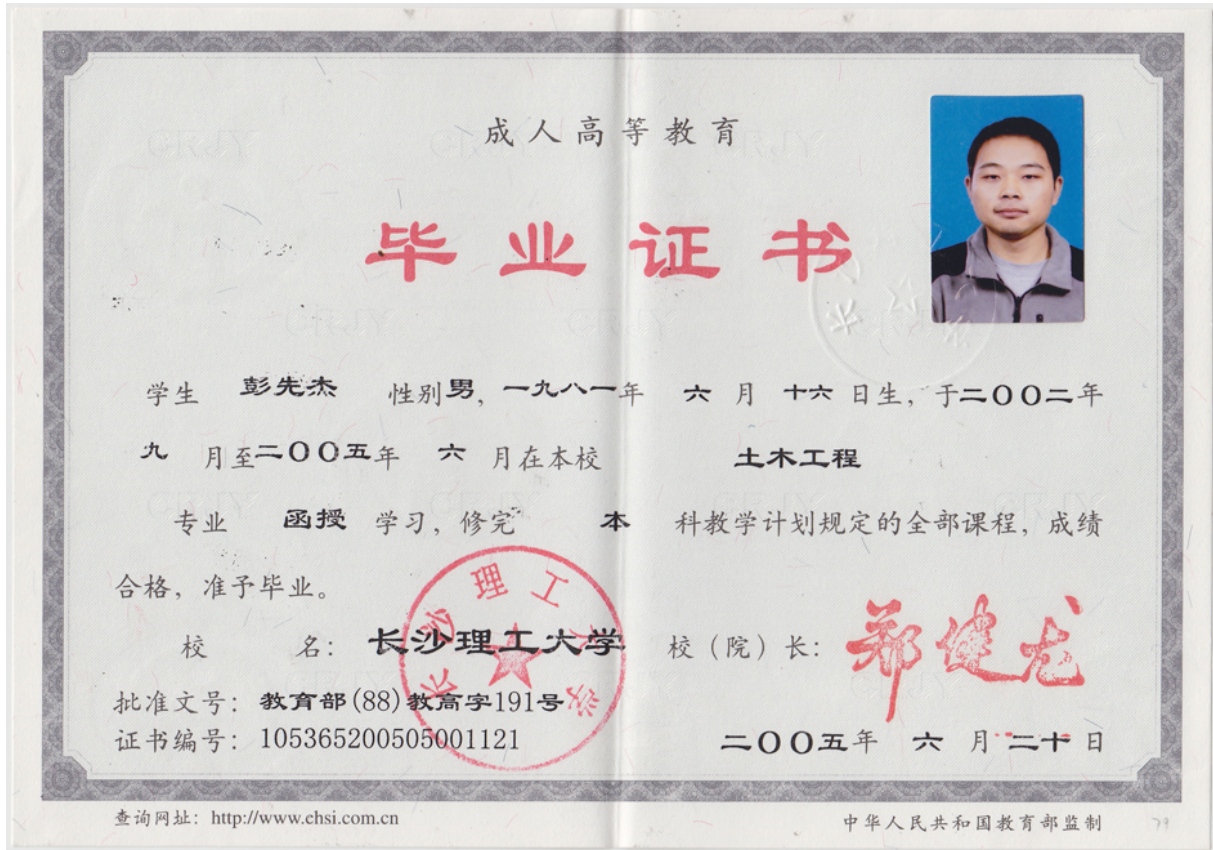 成人高等教育
毕业证书
学生 彭先杰 性别男，一九八一年 六 月 十六 日生，于二〇〇二年
九 月至二〇〇五年 六 月在本校 土木工程
专业 函授 学习，修完 本 科教学计划规定的全部课程，成绩
合格，准予毕业。
校 名：长沙理工大学 校（院）长：郑健龙
批准文号：教育部(88)教高字191号
证书编号：105365200505001121
二〇〇五年 六 月 二十 日
长沙理工大学
查询网址：http://www.chsi.com.cn
中华人民共和国教育部监制